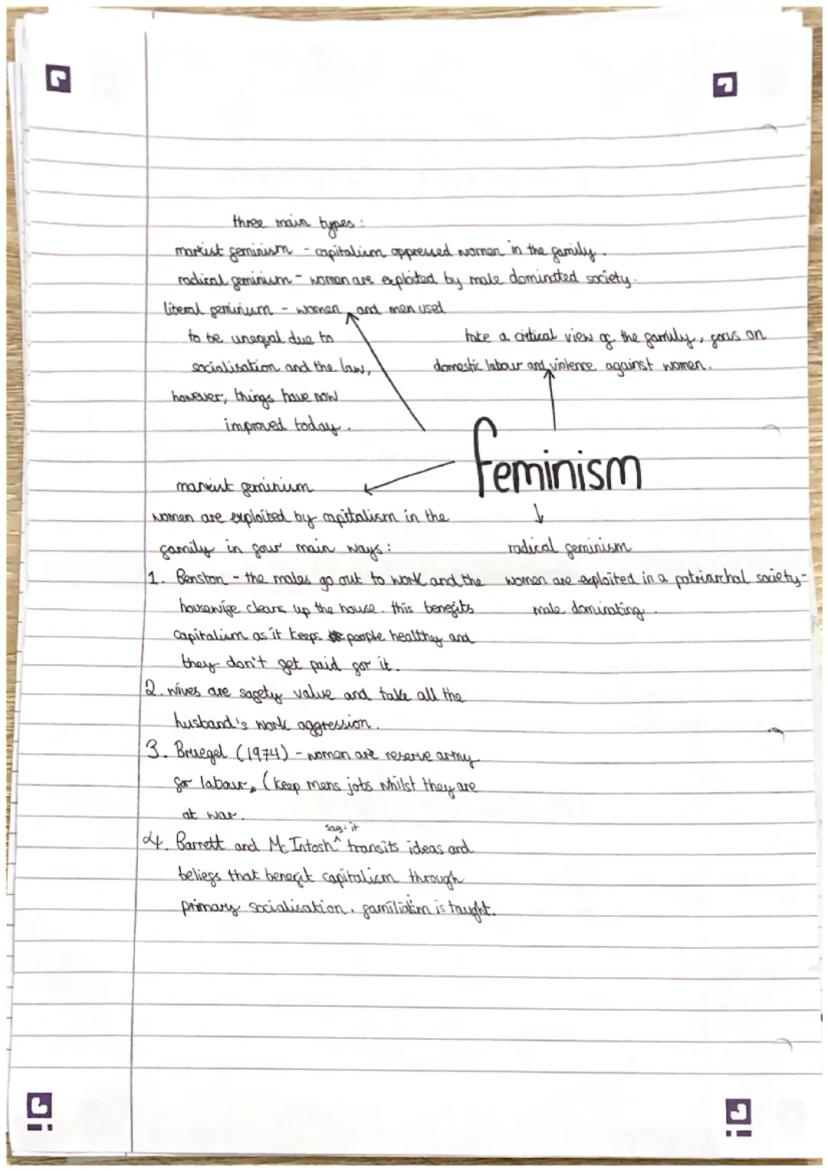 three main types :
marxist feminism - capitalism oppressed women in the family .
radical feminism - women are exploited by male dominated society .
liberal feminism - women and men used
to be unequal due to
socialisation and the law,
however, things have now
improved today .
take a critical view of the family, focus on
domestic labour and violence against women .
feminism
marxist feminism
women are exploited by capitalism in the
family in four main ways :
1. Benston - the males go out to work and the
housewife clears up the house. this benefits
capitalism as it keeps people healthy and
they don't get paid for it .
2. wives are safety value and take all the
husband's work aggression .
3. Bruegel (1974) - women are reserve army
for labour, (keep mens jobs whilst they are
at war .
4. Barrett and McIntosh say: it transits ideas and
beliefs that benefit capitalism through
primary socialisation . familialism is taught .
radical feminism
women are exploited in a patriarchal society -
male dominating .